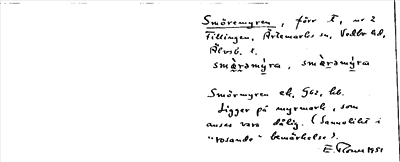 Smöremyren, förr t, nr 2
Tillingen, Ärtemarks sn, Vedbo hd,
Älvsb. l.
smæ̀rəmýra, smæ̀rəmýra
Smörmyren ek. G62, bb.
Ligger på myrmark, som
anses vara dålig. (Sannolikt i
"rosande" bemärkelse).
1951